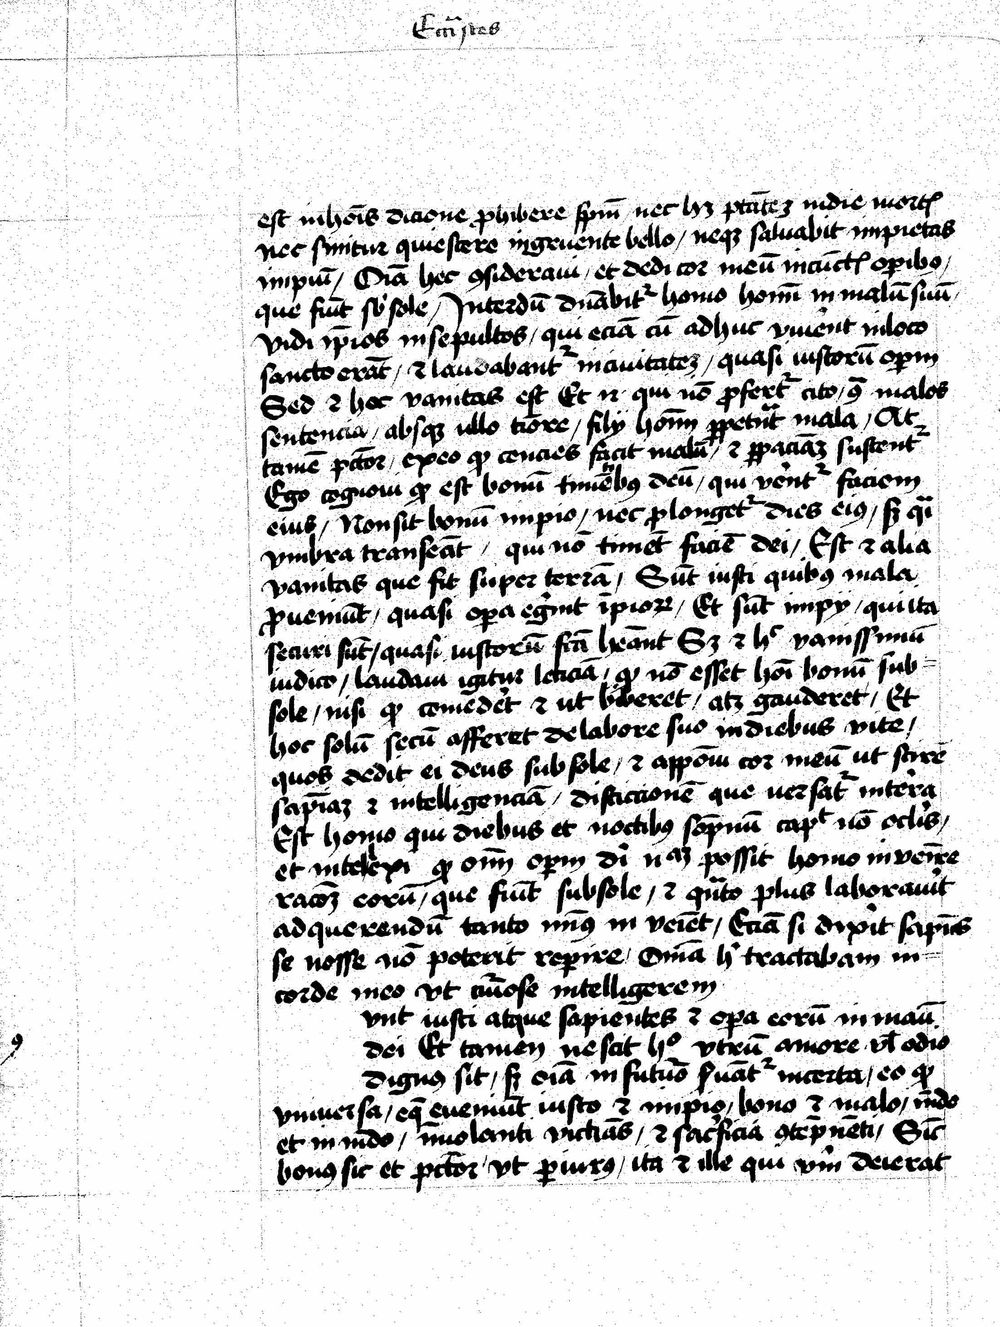 Ecc̄istes
est in hoīs dicione ꝓhibere sp̄m nec hꝫ ptātez in die mortꝭ
nec sinitur quiescere ingruente bello / neqꝫ saluabit impietas
impiū / Oīa hec ꝯsideraui / et dedi cor meū in cūctꝭ oꝑibꝰ /
que fiūt sb̓ sole / Interdū dn̄abit᷑ homo homī in malū suū /
vidi īpios in sepultos / qui eciā cū adhuc viuent in loco
sancto erāt / ⁊ laudabant᷑ in ciuitatez / quasi iustorū oꝑm
Sed ⁊ hoc vanitas est Et n̄ qui nō ꝓfert᷑ cito / ꝯͣ malos
sentencia / absqꝫ ullo tīore / filij hoīm ꝑpetnt mala / At
tamē pctōr / ex eo ꝙ cencies facit malū / ⁊ ꝑ paciāꝫ sustent᷑
Ego cognoui ꝙ est bonū timētibꝰ deū / qui vēnt᷑ faciem
eius / Non sit bonū impio / nec ꝓlonget᷑ dies eiꝰ / sꝫ qͣi
vmbra transeāt / qui nō timēt faciē dei / Est ⁊ alia
vanitas que fit super terrā / Sūt iusti quibꝰ mala
ꝓueniūt / quasi oꝑa eg̓int īpioꝝ / Et sūt impij / qui ita
securi sūt / quasi iustorū fc̄a hēant Sꝫ ⁊ hͨ vanissimū
iudico / laudaui igitur leticiā / ꝙ nō esset hoī bonū sub=
sole / nisi ꝙ comed̓et ⁊ ut biberet / atꝫ gauderet / Et
hoc solū secū afferet de labore suo in diebus vite /
quos dedit ei deus sub sole / ⁊ apposui cor meū ut scirē
sap̄iaꝫ ⁊ intelligenciā / distccionē que uersat᷑ in terra
Est homo qui diebus et noctibꝰ sōpnū capͭ nō oclīs /
et intellexi ꝙ oīm oꝑm dī nˡaꝫ possit homo inuenīre
racōꝫ eorū / que fiūt sub sole / ⁊ qͣnto plus laborauīt
ad querendū tanto minꝰ in veīet / Eciā si dixīt sapīēs
se nosse nō poterit reꝑire / Omīa hͨ tractabam in=
corde meo vt cūriose intelligerem
vnt iusti atque sapientes ⁊ oꝑa eorū in manū
dei Et tamen nescit hͦ vtrū amore vl̄ odio
dignus sit / sꝫ oīa in futuͦ ẜuāt᷑ incerta / eo ꝙ
vniuersa / eq̄ eueniūt iusto ⁊ impio / bono ⁊ malo / mūdo
et in mūdo / īmolanti victīas / ⁊ sac̓ficia ꝯtēpnēti / Sic̄
bonꝰ sic et pctōr / vt ꝑiurꝰ / ita ⁊ ille qui vm̄ deierat